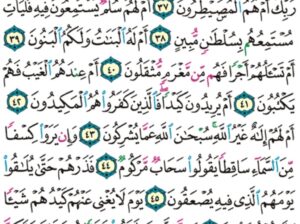 رَبِّكَ أَمْ هُمُ الْمُصَۣيْطِرُونَ ٣٧ أَمْ لَهُمْ سُلَّمٌ يَسْتَمِعُونَ فِيهِ فَلْيَأْتِ
مُسْتَمِعُهُم بِسُلْطَانٍ مُّبِينٍ ٣٨ أَمْ لَهُ الْبَنَاتُ وَلَكُمُ الْبَنُونَ ٣٩
أَمْ تَسْأَلُهُمْ أَجْرًا فَهُم مِّن مَّغْرَمٍ مُّثْقَلُونَ ٤٠ أَمْ عِندَهُمُ الْغَيْبُ فَهُمْ
يَكْتُبُونَ ٤١ أَمْ يُرِيدُونَ كَيْدًا فَالَّذِينَ كَفَرُوا هُمُ الْمَكِيدُونَ ٤٢
أَمْ لَهُمْ إِلَٰهٌ غَيْرُ اللَّهِ سُبْحَانَ اللَّهِ عَمَّا يُشْرِكُونَ ٤٣ وَإِن يَرَوْا كِسْفًا
مِّنَ السَّمَاءِ سَاقِطًا يَقُولُوا سَحَابٌ مَّرْكُومٌ ٤٤ فَذَرْهُمْ حَتَّىٰ يُلَاقُوا
يَوْمَهُمُ الَّذِي فِيهِ يُصْعَقُونَ ٤٥ يَوْمَ لَا يُغْنِي عَنْهُمْ كَيْدُهُمْ شَيْئًا